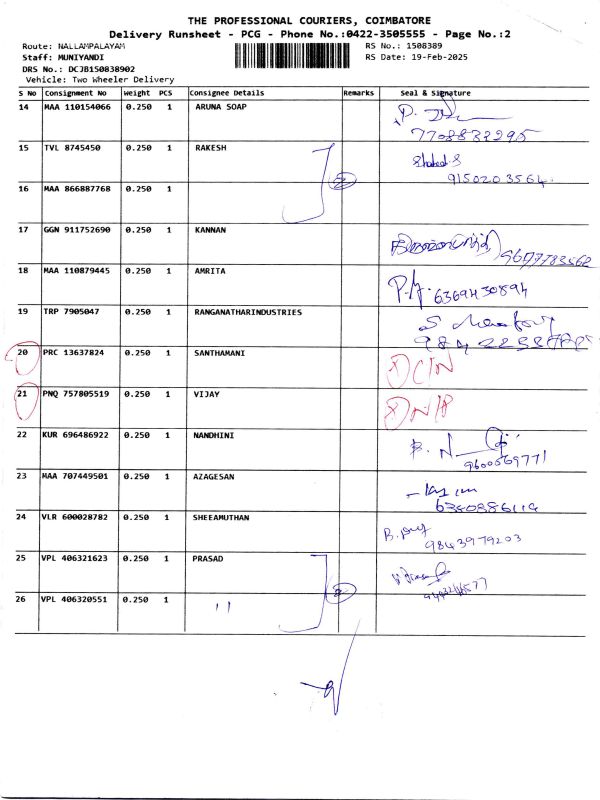 THE PROFESSIONAL COURIERS, COIMBATORE
Delivery Runsheet - PCG - Phone No.:0422-3505555 - Page No.:2
Route: NALLAMPALAYAM RS No.: 1508389
Staff: MUNIYANDI RS Date: 19-Feb-2025
DRS No.: DCJB150838902
Vehicle: Two Wheeler Delivery
S No Consignment No Weight PCS Consignee Details Remarks Seal & Signature
14 MAA 110154066 0.250 1 ARUNA SOAP
7708832295
15 TVL 8745450 0.250 1 RAKESH
9150203564
16 MAA 866887768 0.250 1
17 GGN 911752690 0.250 1 KANNAN
9677783568
18 MAA 110879445 0.250 1 AMRITA
6369430894
19 TRP 7905047 0.250 1 RANGANATHARINDUSTRIES
20 PRC 13637824 0.250 1 SANTHAMANI
21 PNQ 757805519 0.250 1 VIJAY
22 KUR 696486922 0.250 1 NANDHINI
9600069771
23 MAA 707449501 0.250 1 AZAGESAN
24 VLR 600028782 0.250 1 SHEEAMUTHAN
9843979203
25 VPL 406321623 0.250 1 PRASAD
26 VPL 406320551 0.250 1 ''